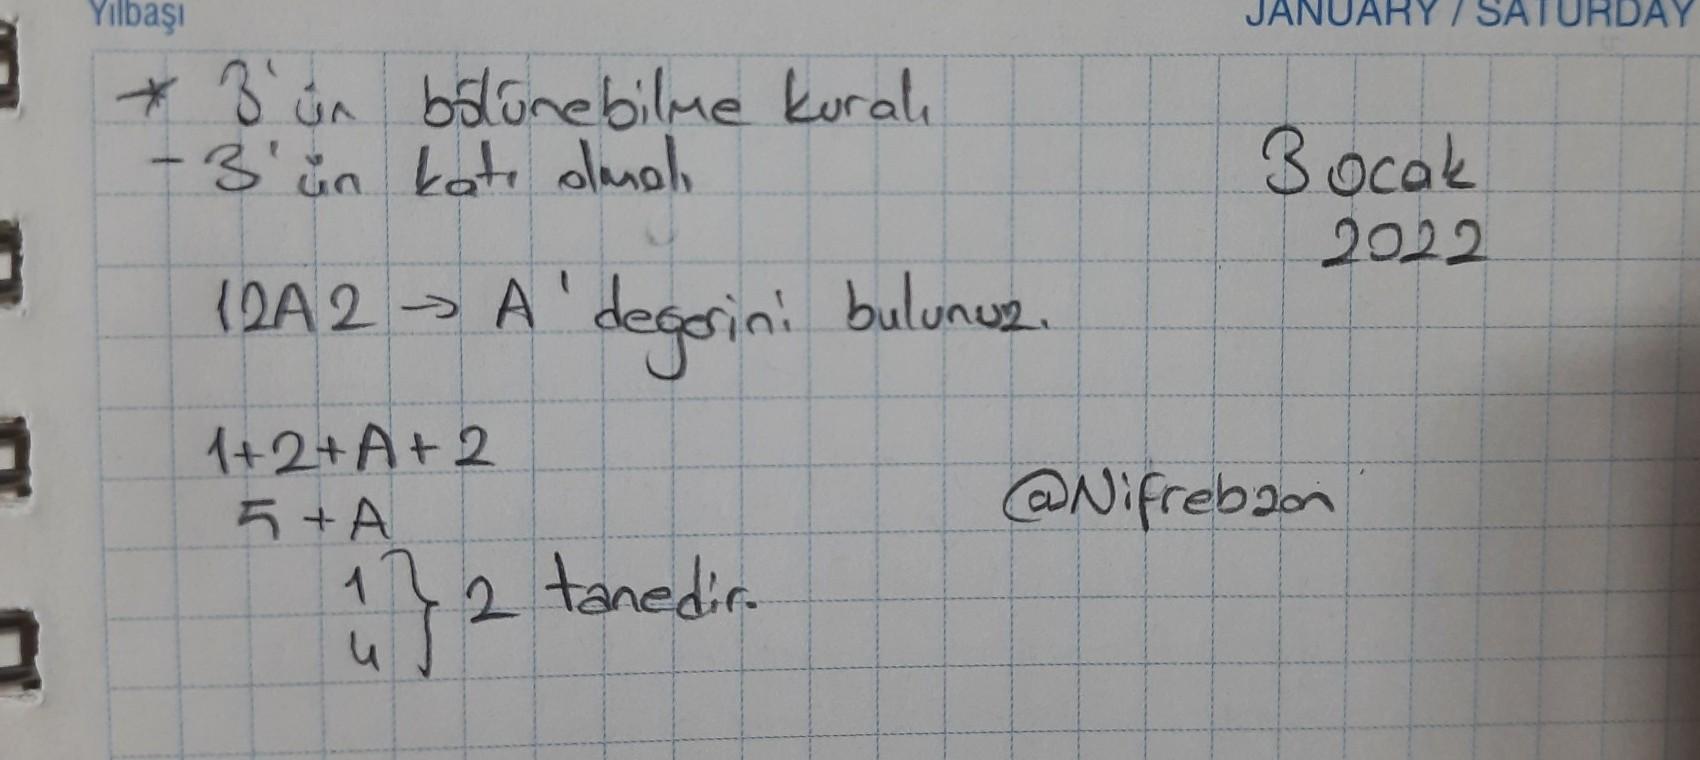 Yılbaşı
JANUARY / SATURDAY
* 3'ün bölünebilme kuralı
- 3'ün katı olmalı
3 ocak
2022
12A2 → A' degerini bulunuz.
1+2+A+2
5+A
@Nifrebzon
1
4 } 2 tanedir.